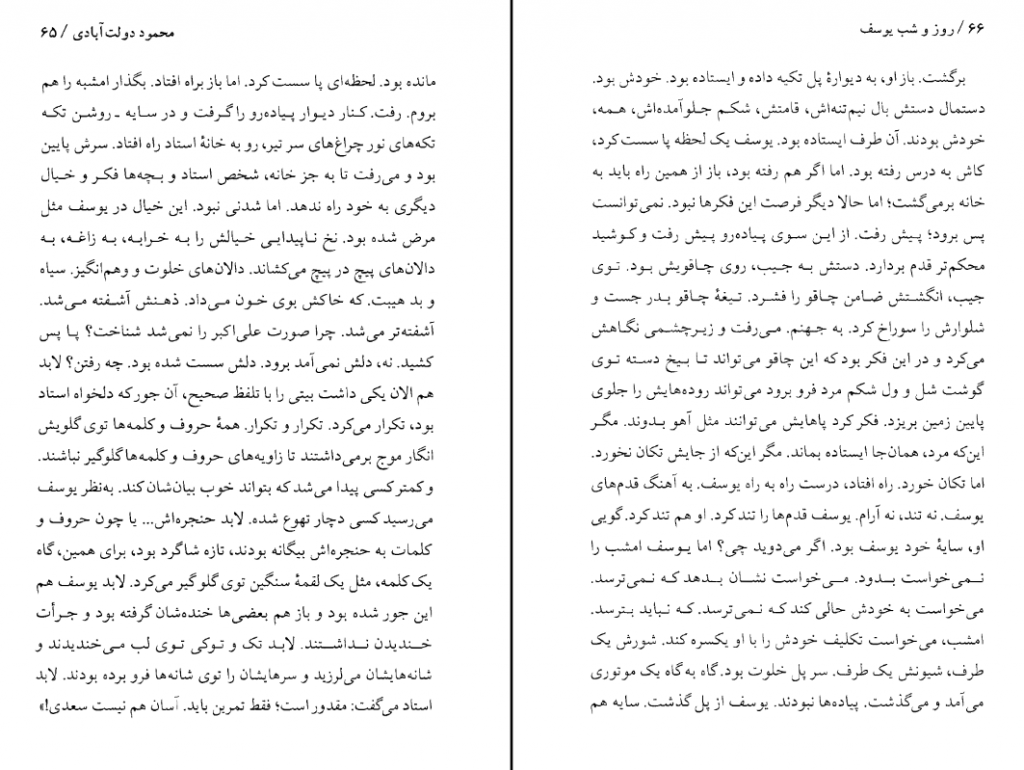 ۶۶ / روز و شب یوسف
برگشت. باز او، به دیوارهٔ پل تکیه داده و ایستاده بود. خودش بود.
دستمال دستش بال نیم‌تنه‌اش، قامتش، شکم جلوآمده‌اش، همه،
خودش بودند. آن طرف ایستاده بود. یوسف یک لحظه پا سست کرد،
کاش به درس رفته بود. اما اگر هم رفته بود، باز از همین راه باید به
خانه برمی‌گشت؛ اما حالا دیگر فرصت این فکرها نبود. نمی‌توانست
پس برود؛ پیش رفت. از این سوی پیاده‌رو پیش رفت و کوشید
محکم‌تر قدم بردارد. دستش به جیب، روی چاقویش بود. توی
جیب، انگشتش ضامن چاقو را فشرد. تیغهٔ چاقو بدر جست و
شلوارش را سوراخ کرد. به جهنم. می‌رفت و زیرچشمی نگاهش
می‌کرد و در این فکر بود که این چاقو می‌تواند تا بیخ دسته توی
گوشت شل و ول شکم مرد فرو برود می‌تواند روده‌هایش را جلوی
پایین زمین بریزد. فکر کرد پاهایش می‌توانند مثل آهو بدوند. مگر
این‌که مرد، همان‌جا ایستاده بماند. مگر این‌که از جایش تکان نخورد.
اما تکان خورد. راه افتاد، درست راه به راه یوسف. به آهنگ قدم‌های
یوسف. نه تند، نه آرام. یوسف قدم‌ها را تند کرد. او هم تند کرد. گویی
او، سایهٔ خود یوسف بود. اگر می‌دوید چی؟ اما یوسف امشب را
نمی‌خواست بدود. می‌خواست نشان بدهد که نمی‌ترسد.
می‌خواست به خودش حالی کند که نمی‌ترسد. که نباید بترسد.
امشب، می‌خواست تکلیف خودش را با او یکسره کند. شورش یک
طرف، شیونش یک طرف. سر پل خلوت بود. گاه به گاه یک موتوری
می‌آمد و می‌گذشت. پیاده‌ها نبودند. یوسف از پل گذشت. سایه هم
محمود دولت‌آبادی / ۶۵
مانده بود. لحظه‌ای پا سست کرد. اما باز براه افتاد. بگذار امشبه را هم
بروم. رفت. کنار دیوار پیاده‌رو را گرفت و در سایه ـ روشن تکه
تکه‌های نور چراغ‌های سر تیر، رو به خانهٔ استاد راه افتاد. سرش پایین
بود و می‌رفت تا به جز خانه، شخص استاد و بچه‌ها فکر و خیال
دیگری به خود راه ندهد. اما شدنی نبود. این خیال در یوسف مثل
مرض شده بود. نخ ناپیدایی خیالش را به خرابه، به زاغه، به
دالان‌های پیچ در پیچ می‌کشاند. دالان‌های خلوت و وهم‌انگیز. سیاه
و بد هیبت. که خاکش بوی خون می‌داد. ذهنش آشفته می‌شد.
آشفته‌تر می‌شد. چرا صورت علی‌اکبر را نمی‌شد شناخت؟ پا پس
کشید. نه، دلش نمی‌آمد برود. دلش سست شده بود. چه رفتن؟ لابد
هم الان یکی داشت بیتی را با تلفظ صحیح، آن جور که دلخواه استاد
بود، تکرار می‌کرد. تکرار و تکرار. همهٔ حروف و کلمه‌ها توی گلویش
انگار موج برمی‌داشتند تا زاویه‌های حروف و کلمه‌ها گلوگیر نباشند.
و کمتر کسی پیدا می‌شد که بتواند خوب بیان‌شان کند. به‌نظر یوسف
می‌رسید کسی دچار تهوع شده. لابد حنجره‌اش... یا چون حروف و
کلمات به حنجره‌اش بیگانه بودند، تازه شاگرد بود، برای همین، گاه
یک کلمه، مثل یک لقمهٔ سنگین توی گلو گیر می‌کرد. لابد یوسف هم
این جور شده بود و باز هم بعضی‌ها خنده‌شان گرفته بود و جرأت
خندیدن نداشتند. لابد تک و توکی توی لب می‌خندیدند و
شانه‌هایشان می‌لرزید و سرهایشان را توی شانه‌ها فرو برده بودند. لابد
استاد می‌گفت: مقدور است؛ فقط تمرین باید. آسان هم نیست سعدی!»